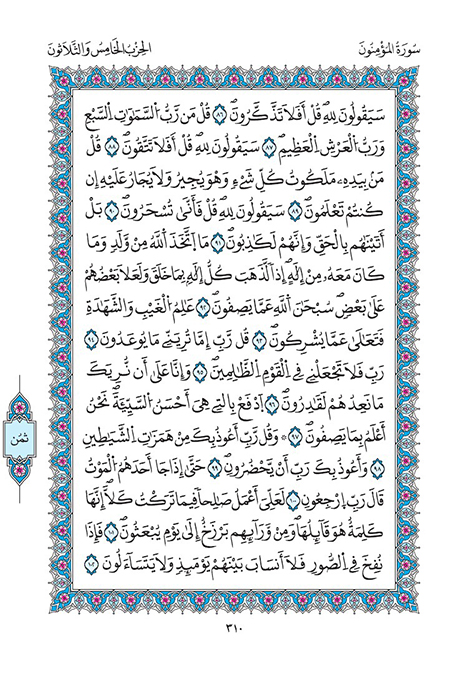 سُورَةُ المُؤْمِنُونَ
الحِزْبُ الخَامِسُ وَالثَّلَاثُونَ
سَيَقُولُونَ لِلَّهِ قُلْ أَفَلَا تَذَّكَّرُونَ ٨٦ قُلْ مَن رَّبُّ السَّمَٰوَٰتِ السَّبْعِ
وَرَبُّ الْعَرْشِ الْعَظِيمِ ٨٧ سَيَقُولُونَ لِلَّهِ قُلْ أَفَلَا تَتَّقُونَ ٨٨ قُلْ
مَنۢ بِيَدِهِۦ مَلَكُوتُ كُلِّ شَيْءٍ وَهُوَ يُجِيرُ وَلَا يُجَارُ عَلَيْهِ إِن
كُنتُمْ تَعْلَمُونَ ٨٩ سَيَقُولُونَ لِلَّهِ قُلْ فَأَنَّىٰ تُسْحَرُونَ ٩٠ بَلْ
أَتَيْنَٰهُم بِالْحَقِّ وَإِنَّهُمْ لَكَٰذِبُونَ ٩١ مَا اتَّخَذَ اللَّهُ مِنْ وَلَدٍ وَمَا
كَانَ مَعَهُۥ مِنْ إِلَٰهٍ إِذًا لَّذَهَبَ كُلُّ إِلَٰهٍۭ بِمَا خَلَقَ وَلَعَلَا بَعْضُهُمْ
عَلَىٰ بَعْضٍ سُبْحَٰنَ اللَّهِ عَمَّا يَصِفُونَ ٩٢ عَٰلِمُ الْغَيْبِ وَالشَّهَٰدَةِ
فَتَعَٰلَىٰ عَمَّا يُشْرِكُونَ ٩٣ قُل رَّبِّ إِمَّا تُرِيَنِّي مَا يُوعَدُونَ ٩٤
رَبِّ فَلَا تَجْعَلْنِي فِي الْقَوْمِ الظَّٰلِمِينَ ٩٥ وَإِنَّا عَلَىٰ أَن نُّرِيَكَ
مَا نَعِدُهُمْ لَقَٰدِرُونَ ٩٦ اِدْفَعْ بِالَّتِي هِيَ أَحْسَنُ السَّيِّئَةَ نَحْنُ
أَعْلَمُ بِمَا يَصِفُونَ ٩٧ وَقُل رَّبِّ أَعُوذُ بِكَ مِنْ هَمَزَٰتِ الشَّيَٰطِينِ
٩٨ وَأَعُوذُ بِكَ رَبِّ أَنْ يَّحْضُرُونِ ٩٩ حَتَّىٰ إِذَا جَا أَحَدَهُمُ الْمَوْتُ
قَالَ رَبِّ ارْجِعُونِ ١٠٠ لَعَلِّيَ أَعْمَلُ صَٰلِحًا فِيمَا تَرَكْتُ كَلَّا إِنَّهَا
كَلِمَةٌ هُوَ قَآئِلُهَا وَمِنْ وَرَآئِهِم بَرْزَخٌ إِلَىٰ يَوْمِ يُبْعَثُونَ ١٠١ فَإِذَا
نُفِخَ فِي الصُّورِ فَلَا أَنسَابَ بَيْنَهُمْ يَوْمَئِذٍ وَلَا يَتَسَآءَلُونَ ١٠٢
ثمن
٣١٠